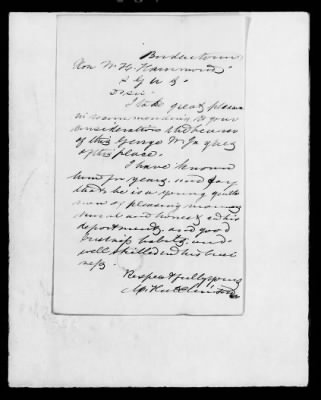 Bordentown
Hon W. H. Hammond
S G U S
Dr Sir
I take great pleasure
in recommending to your
consideration the bearer
of this George W. Jaques
of this place.
I have known
him for years and say
that he is a young gentle
man of pleasing manners
moral and honest in his
deportment and good
business habits and
well skilled in his busi
ness.
Respectfully yours